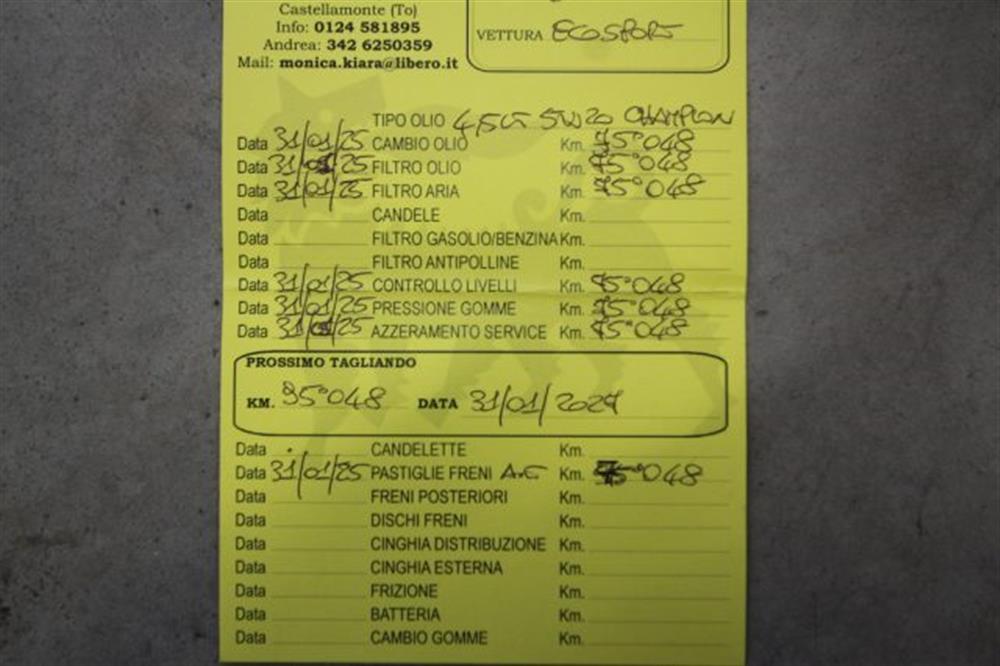 Castellamonte (To)
Info: 0124 581895
Andrea: 342 6250359
Mail: monica.kiara@libero.it
VETTURA ECOSPORT
TIPO OLIO 4,5LT 5W20 CHAMPION
Data 31/01/25 CAMBIO OLIO Km. 75°048
Data 31/01/25 FILTRO OLIO Km. 75°048
Data 31/01/25 FILTRO ARIA Km. 75°048
Data CANDELE Km.
Data FILTRO GASOLIO/BENZINA Km.
Data FILTRO ANTIPOLLINE Km.
Data 31/01/25 CONTROLLO LIVELLI Km. 75°048
Data 31/01/25 PRESSIONE GOMME Km. 75°048
Data 31/01/25 AZZERAMENTO SERVICE Km. 75°048
PROSSIMO TAGLIANDO
KM. 95°048 DATA 31/01/2027
Data CANDELETTE Km.
Data 31/01/25 PASTIGLIE FRENI Km. 75°048
Data FRENI POSTERIORI Km.
Data DISCHI FRENI Km.
Data CINGHIA DISTRIBUZIONE Km.
Data CINGHIA ESTERNA Km.
Data FRIZIONE Km.
Data BATTERIA Km.
Data CAMBIO GOMME Km.